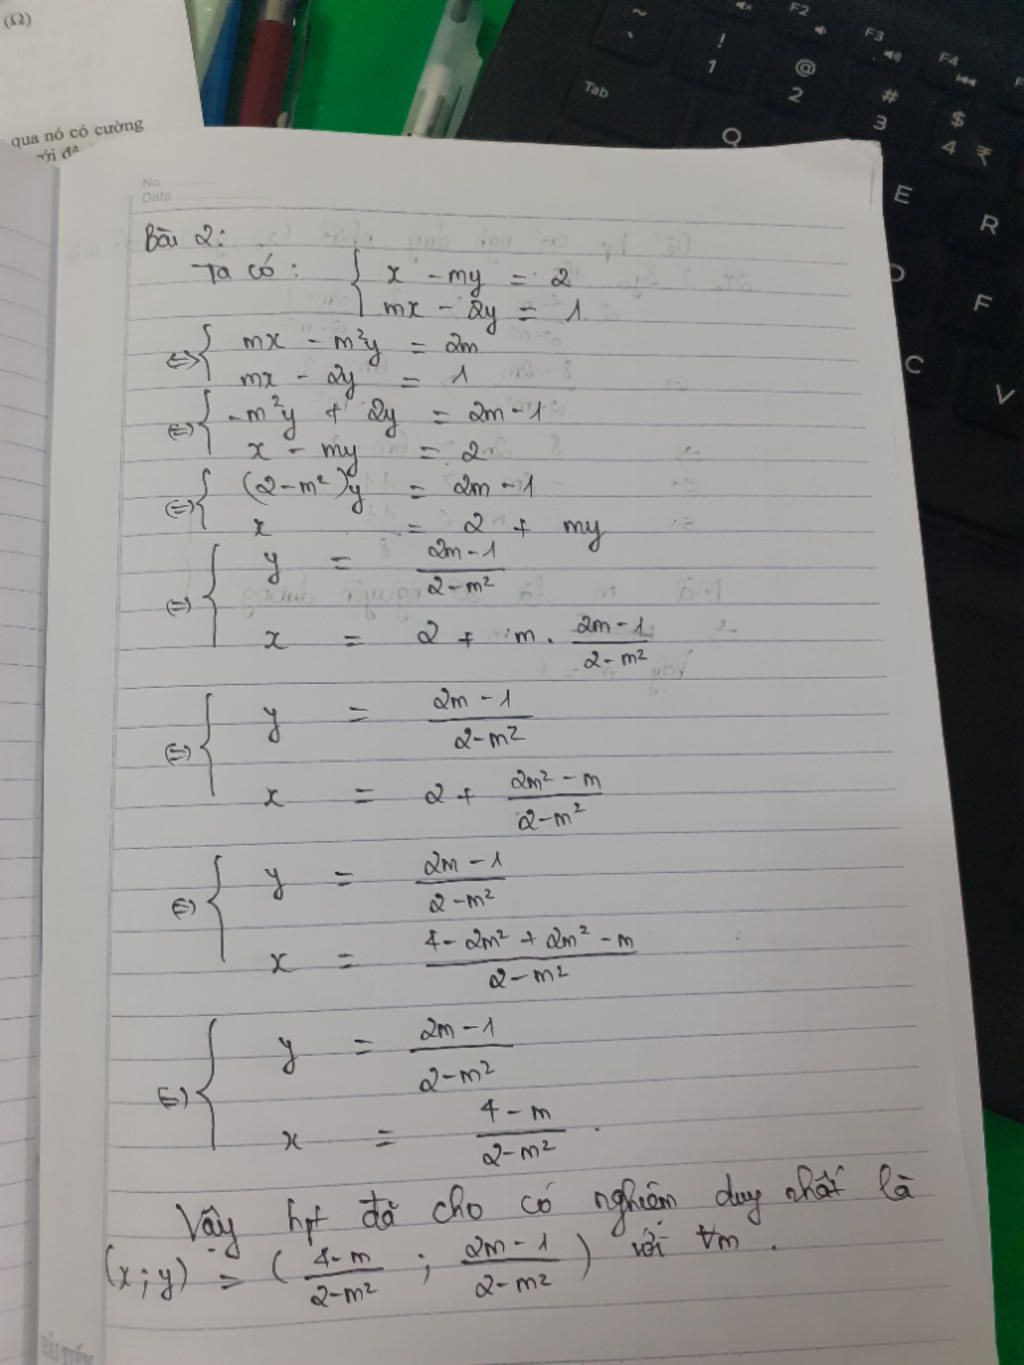 (Ω)
qua nó có cường
No. ..........
Date ....................
Bài 2:
Ta có: { x - my = 2
mx - 2y = 1
⇔ { mx - m²y = 2m
mx - 2y = 1
⇔ { -m²y + 2y = 2m - 1
x - my = 2
⇔ { (2 - m²)y = 2m - 1
x = 2 + my
⇔ { y = (2m - 1)/(2 - m²)
x = 2 + m . (2m - 1)/(2 - m²)
⇔ { y = (2m - 1)/(2 - m²)
x = 2 + (2m² - m)/(2 - m²)
⇔ { y = (2m - 1)/(2 - m²)
x = (4 - 2m² + 2m² - m)/(2 - m²)
⇔ { y = (2m - 1)/(2 - m²)
x = (4 - m)/(2 - m²) .
Vậy hpt đã cho có nghiệm duy nhất là
(x ; y) = ( (4 - m)/(2 - m²) ; (2m - 1)/(2 - m²) ) với ∀m .
Tab
~ `
! 1
@ 2
# 3
$ 4 ₹
F2
F3
F4
Q
E
R
D
F
C
V